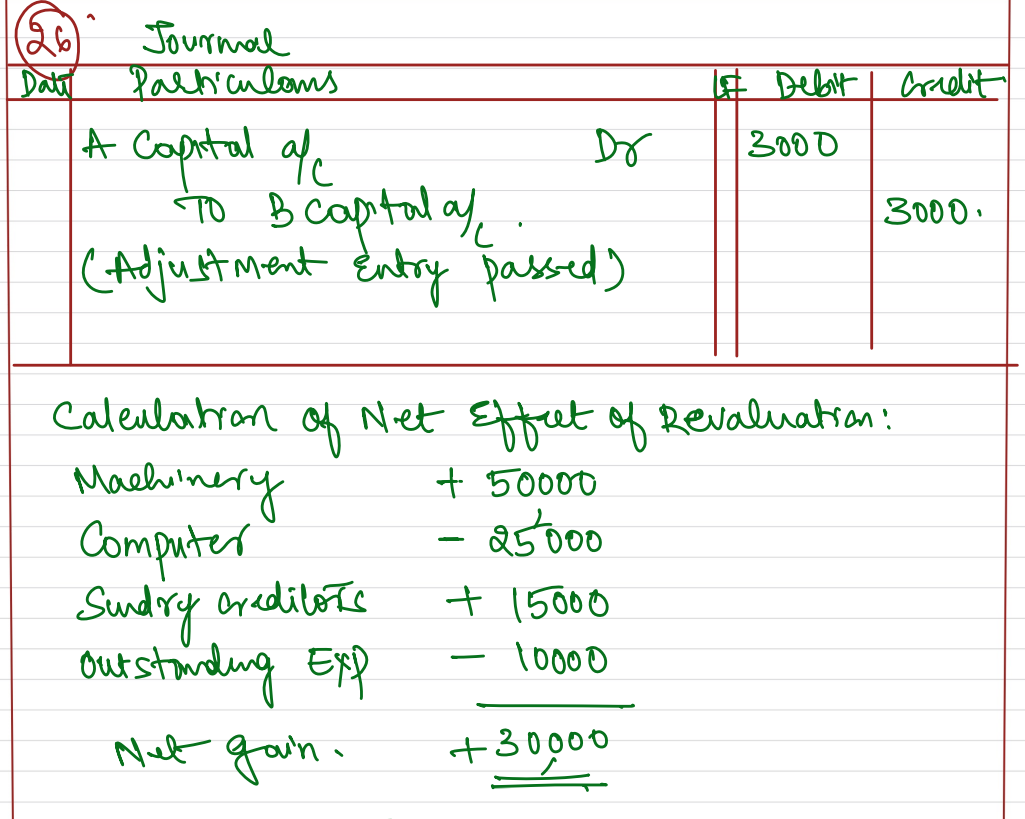 26
Journal
Date Particulars LF Debit Credit
A Capital a/c Dr 3000
To B Capital a/c. 3000.
(Adjustment Entry passed)
Calculation of Net Effect of Revaluation:
Machinery + 50000
Computer - 25,000
Sundry creditors + 15000
Outstanding Exp - 10000
Net gain. + 30,000